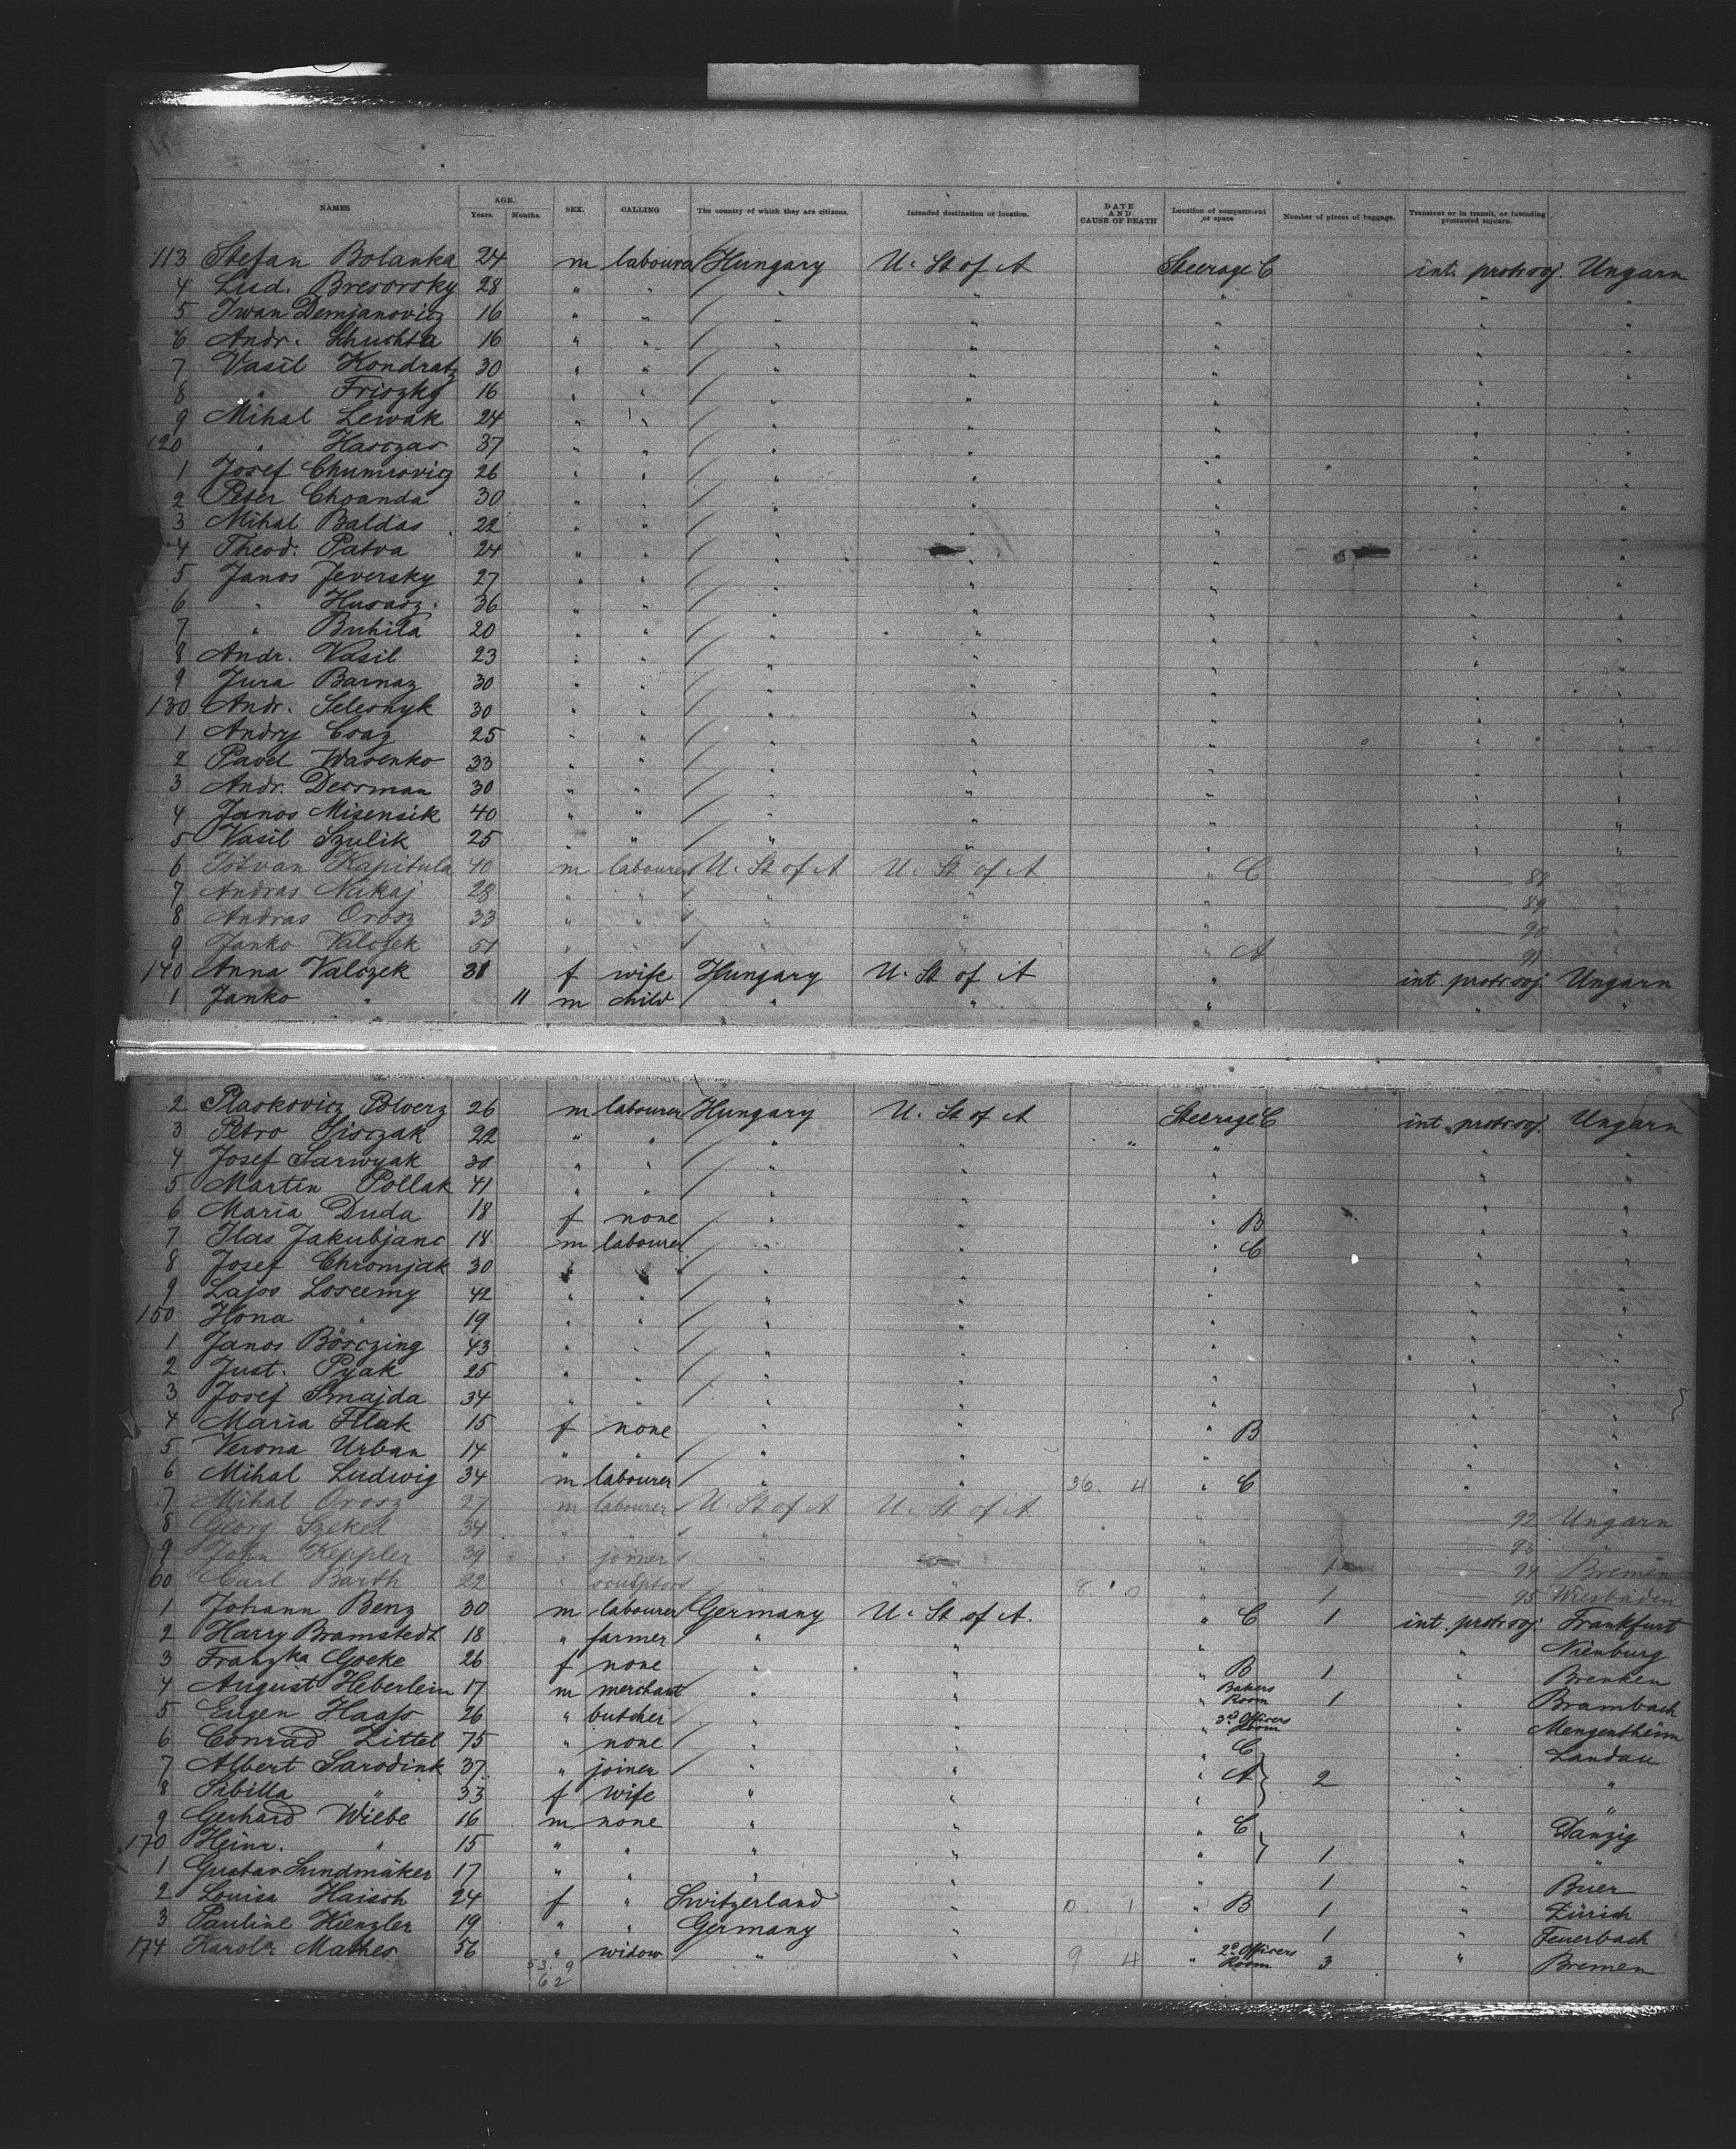 NAMES AGE. Years. Months. SEX. CALLING The country of which they are citizens. Intended destination or location. DATE AND CAUSE OF DEATH Location of compartment or space Number of pieces of baggage. Transient or in transit, or intending protracted sojourn.
113 Stefan Bolanka 24 m labourer Hungary U. St of A Steerage C int. protr soj. Ungarn
4 Lud. Bresorsky 28 " " " " " " "
5 Iwan Demjanovicz 16 " " " " " " "
6 Andr. 16 " " " " " " "
7 Vasil Kondratz 30 " " " " " " "
8 " Friszky 16 " " " " " " "
9 Mihal Lewak 24 " " " " " " "
120 " Hasczas 37 " " " " " " "
1 Josef Chumrovicz 26 " " " " " " "
2 Peter Choanda 30 " " " " " " "
3 Mihal Baldas 22 " " " " " " "
4 Theod. Patva 24 " " " " " " "
5 Janos Jeversky 27 " " " " " " "
6 " Husasz 36 " " " " " " "
7 " Buhila 20 " " " " " " "
8 Andr. Vasil 23 " " " " " " "
9 Jura Barnaz 30 " " " " " " "
130 Andr. Selesnyk 30 " " " " " " "
1 Andry Csaz 25 " " " " " " "
2 Pavel Wasenko 33 " " " " " " "
3 Andr. Dessman 30 " " " " " " "
4 Janos Misensik 40 " " " " " " "
5 Vasil Szulik 25 " " " " " " "
6 Istvan Kapitula 40 m labourer U. St of A U. St of A " C 88 "
7 Andras Nakaj 28 " " " " " 89 "
8 Andras Orosz 33 " " " " " 90 "
9 Janko Valczek 51 " " " " " A 91 "
140 Anna Valczek 38 f wife Hungary U. St of A " int. protr soj. Ungarn
1 Janko " 11 m child " " " " "
2 Plaskovicz Polverz 26 m labourer Hungary U. St of A Steerage C int. protr soj. Ungarn
3 Petro Sisczak 22 " " " " " " "
4 Josef Sarwyak 30 " " " " " " "
5 Martin Pollak 41 " " " " " " "
6 Maria Duda 18 f none " " " B " "
7 Ilas Jakubjanc 18 m labourer " " " C " "
8 Josef Chromjak 30 " " " " " " "
9 Lajos Loscemy 42 " " " " " " "
150 Ilona " 19 " " " " " " "
1 Janos Börczing 43 " " " " " " "
2 Just. Pyak 25 " " " " " " "
3 Josef Smajda 34 " " " " " " "
4 Maria Filak 15 f none " " " B " "
5 Verona Urban 14 " " " " " " "
6 Mihal Ludwig 34 m labourer " " 36. 4 " C " "
7 Mihal Orosz 27 m labourer U. St of A U. St of A " 92 Ungarn
8 Georg Szekel 34 " " " " " 93 "
9 John Keppler 39 " joiner " " " 1 94 Bremen
60 Carl Barth 22 " sculptor " " 8. 0 " 1 95 Wiesbaden
1 Johann Benz 30 m labourer Germany U. St of A. " C 1 int. protr soj. Frankfurt
2 Harry Bramstedt 18 " farmer " " " " Nienburg
3 Franzka Goeke 26 f none " " " B 1 " Brenken
4 August Heberlein 17 m merchant " " " Bakers Room 1 " Brambach
5 Eugen Haafs 26 " butcher " " " 3d Officers Room " Mengentheim
6 Conrad Zittel 75 " none " " " C " Landau
7 Albert Sarodink 37 " joiner " " " A 2 " "
8 Sibilla " 33 f wife " " " " "
9 Gerhard Wiebe 16 m none " " " C " Danzig
170 Heinr. " 15 " " " " " 1 " "
1 Gustav Sundmäker 17 " " " " " 1 " Buer
2 Louisa Haisch 24 f " Switzerland " 0. 1 " B 1 " Zürich
3 Pauline Kienzler 19 " " Germany " 1 " Feuerbach
174 Karolr Mathes 56 " widow " " 9 4 " 2d Officers Room 3 " Bremen
53. 9
62